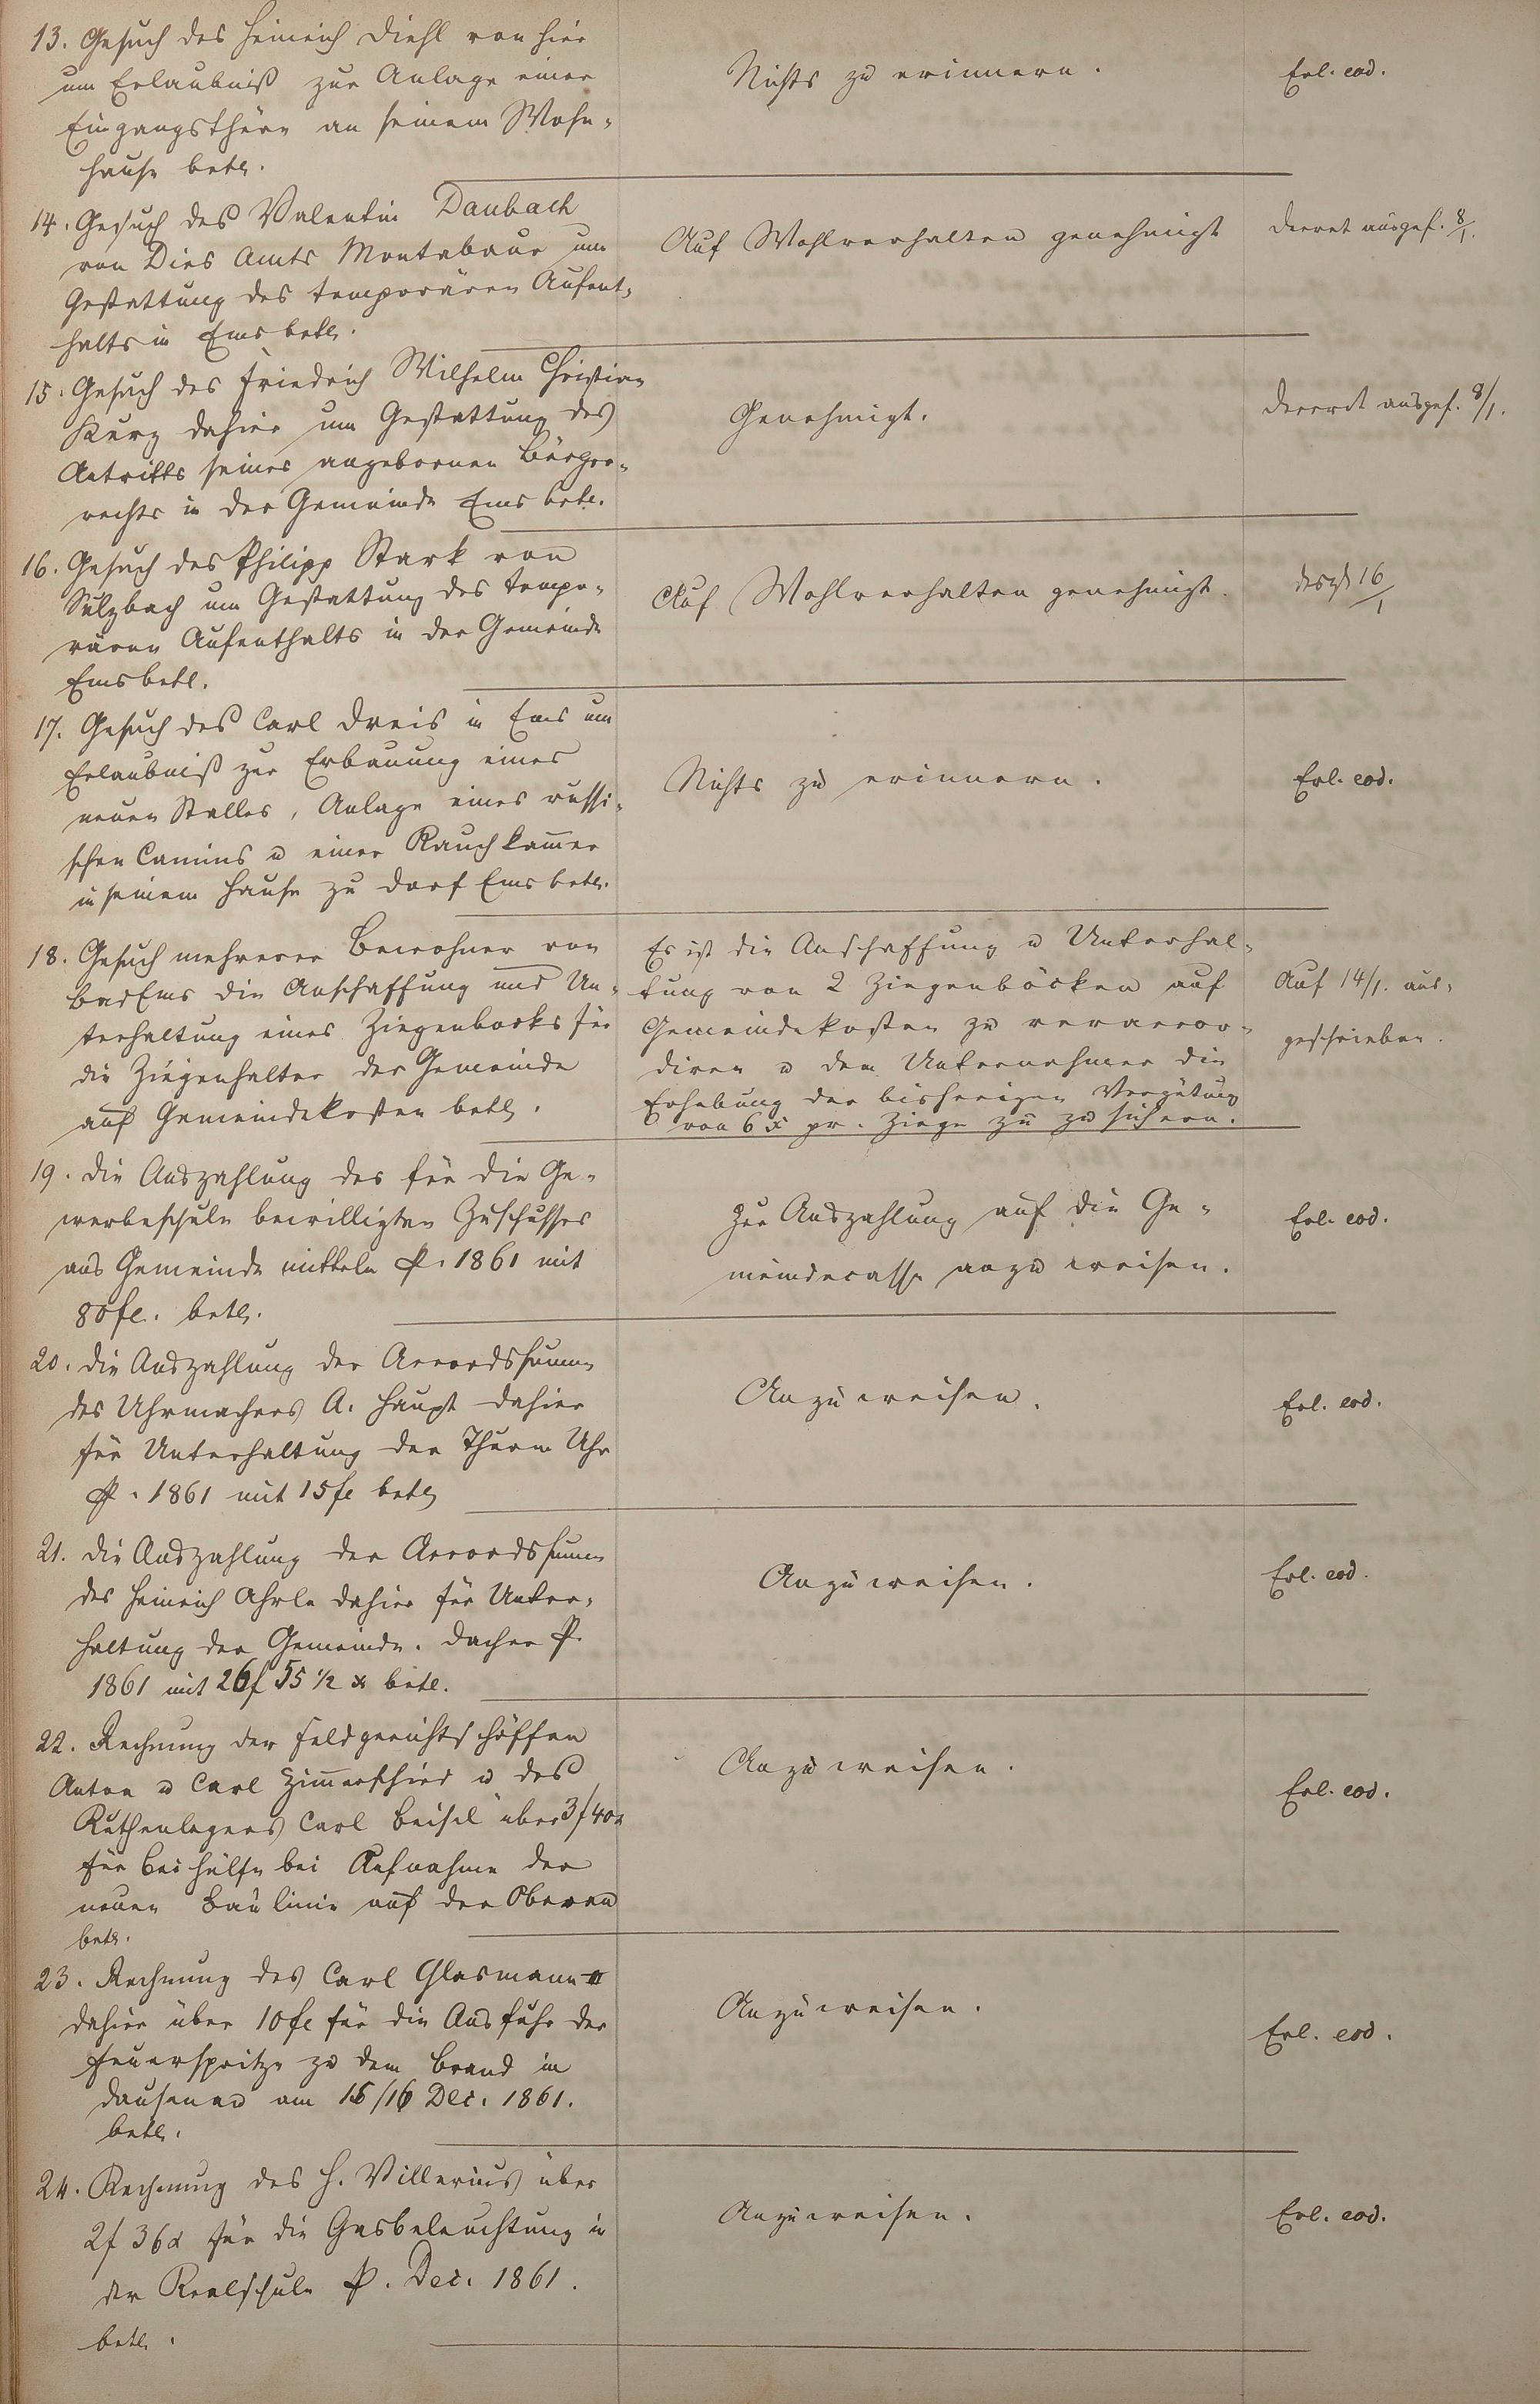 13. Gesuch des Heinrich Diehl von hier
um Erlaubniß zur Anlage einer
Eingangsthüre an seinem Wohn-
hause betr.
Nichts zu erinnern.
Erl. eod.
14. Gesuch des Valentin Daubach
von Dies Amts Montabaur um
Gestattung des temporären Aufent-
halts in Ems betr.
Auf Wohlverhalten genehmigt
Decret ausgef. 8/1.
15. Gesuch des Friedrich Wilhelm Christian
Kurz dahier um Gestattung des
Antritts seines angebornen Bürger-
rechts in der Gemeinde Ems betr.
Genehmigt.
Decret ausgef. 8/1.
16. Gesuch des Philipp Stark von
Sulzbach um Gestattung des tempo-
rären Aufenthalts in der Gemeinde
Ems betr.
Auf Wohlverhalten genehmigt.
desgl 16/1
17. Gesuch des Carl Dreis in Ems um
Erlaubniß zur Erbauung eines
neuen Stalles, Anlage eines russi-
schen Camins u einer Rauchkammer
in seinem Hause zu Dorf Ems betr.
Nichts zu erinnern.
Erl. eod.
18. Gesuch mehrerer Bewohner von
Bad Ems die Anschaffung und Un-
terhaltung eines Ziegenbocks für
die Ziegenhalter der Gemeinde
auf Gemeindekosten betr.
Es ist die Anschaffung u Unterhal-
tung von 2 Ziegenböcken auf
Gemeindekosten zu veraccor-
diren u dem Unternehmer die
Erhebung der bisherigen Vergütung
von 6 x pr. Ziege zu zu sichern.
Auf 14/1. aus-
geschrieben.
19. Die Auszahlung des für die Ge-
werbeschule bewilligten Zuschusses
aus Gemeinde mitteln p. 1861 mit
80 fl. betr.
Zur Auszahlung auf die Ge-
meindecasse anzuweisen.
Erl. eod.
20. Die Auszahlung der Accordsumme
des Uhrmachers A. Haupt dahier
für Unterhaltung der Thurm Uhr
p. 1861 mit 15 fl betr
Anzuweisen.
Erl. eod.
21. Die Auszahlung der Accordsumme
des Heinrich Ahrle dahier für Unter-
haltung der Gemeinde. Dächer p.
1861 mit 26 f 55 1/2 x betr.
Anzuweisen.
Erl. eod.
22. Rechnung der Feldgerichtschöffen
Anton u Carl Zimmerschied u des
Ruthenlegers Carl Beisel über 3 f 40 x
für Beihülfe bei Aufnahme der
neuen Baulinie auf der Oberau
betr.
Anzuweisen.
Erl. eod.
23. Rechnung des Carl Glasmann II
dahier über 10 fl für die Ausfuhr der
Feuerspritze zu dem Brand in
Dausenau am 15/16 Dec. 1861.
betr.
Anzuweisen.
Erl. eod.
24. Rechnung des H. Villerius über
2 f 36 x für die Gasbeleuchtung in
der Realschule p. Dec. 1861.
betr.
Anzuweisen.
Erl. eod.